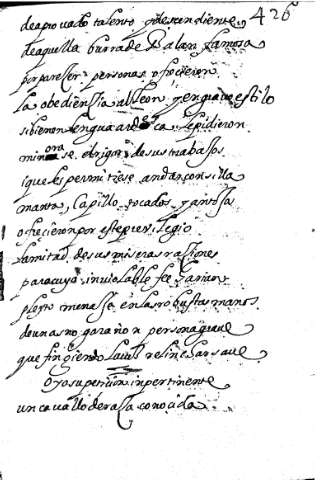 426
de aprovado talento y desçendiente
de aquella burra de Balan famosa
por paresçer personas ofreçieron
la obediençia al leon y en grave estilo
si bien en lengua ardesca le pidieron
minorase el rigor de sus trabajos
i que les permitiese andar con silla
manta, Capillo, tocados, xarosa
ofreçieron por este previlegio
la mitad de sus miseras raçiones
para cuya inviolable fee harian
pleyto menasse en las robustas manos
de un asno garañon persona grave
que fingiendo la vos relinchar save
Oyo su petiçion inpertinente
un cavallo de rasa conoçida